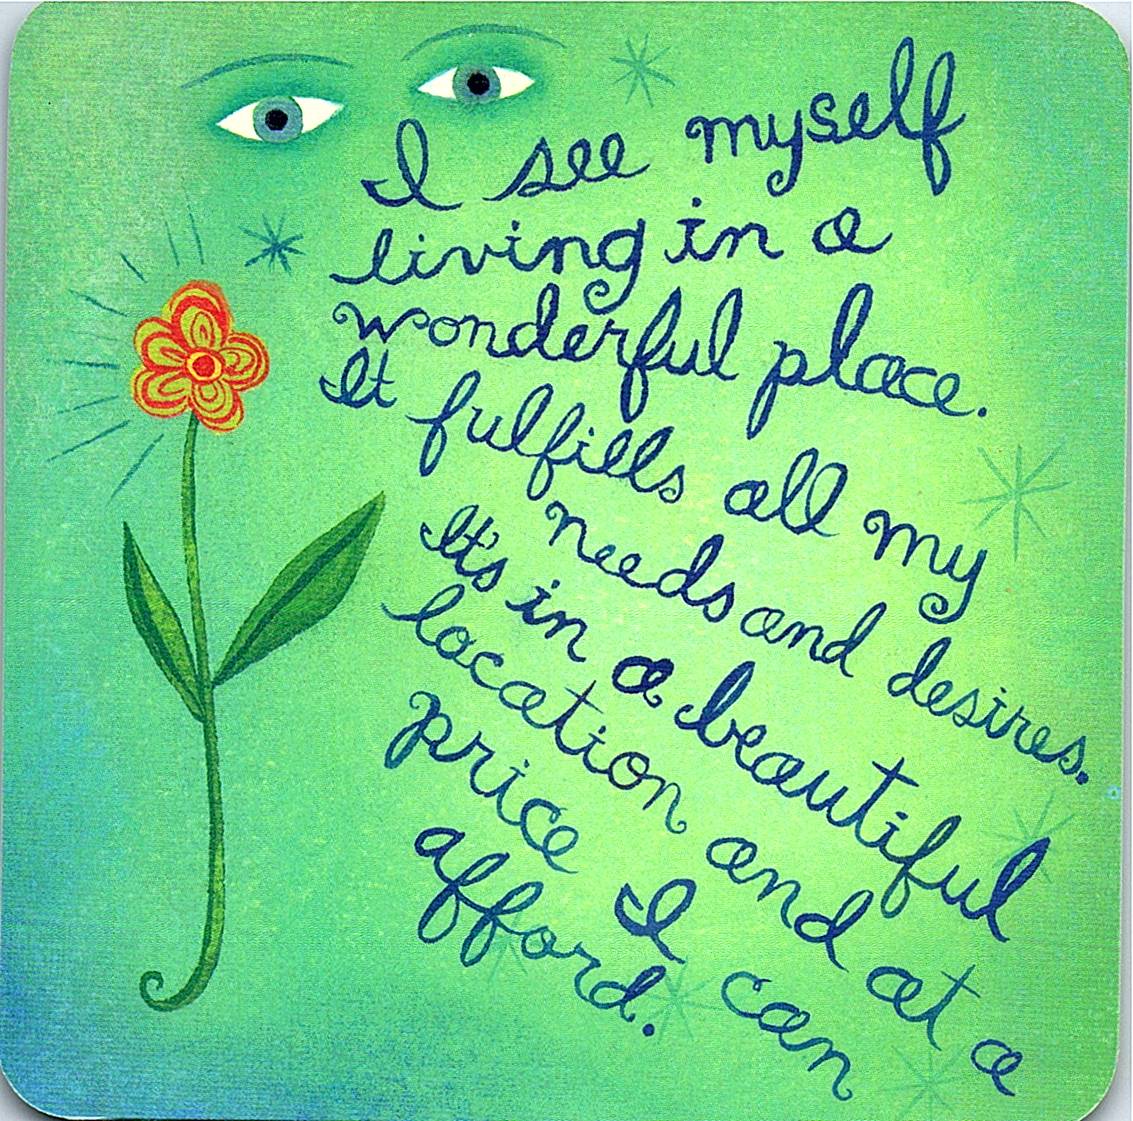 I see myself
living in a
wonderful place.
It fulfills all my
needs and desires.
It's in a beautiful
location and at a
price I can
afford.